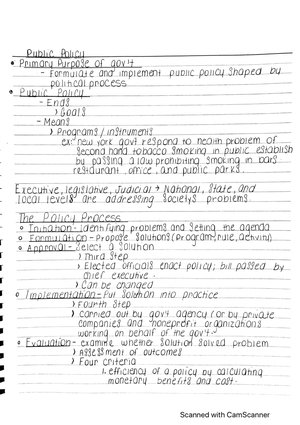 Public Policy
• Primary Purpose of gov't
- Formulate and implement public policy shaped by
political process
• Public Policy
- Ends
> Goals
- Means
> Programs / instruments
ex: new york govt respond to health problem of
second hand tobacco smoking in public establish
by passing a law prohibiting smoking in bars
restaurant, office, and public parks.
Executive, legislative, Judicial → National, State, and
local levels are addressing societys problems.
The Policy Process
• Initiation - Identifying problems and setting the agenda
• Formulation - Propose Solutions (Program, rule, activity)
• Approval - Select a Solution
> Third Step
> Elected officials enact policy; bill passed by
chief executive.
> Can be changed
• Implementation - Put solution into practice
> Fourth Step
> carried out by gov't agency (or by private
companies and nonprofit organizations
working on behalf of the gov't.
• Evaluation - examine whether solution solved problem
> Assessment of outcomes
> Four criteria
1. efficiency of a policy by calculating
monetary benefits and cost.
Scanned with CamScanner